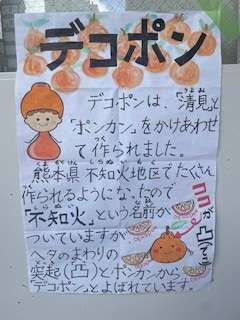 デコポン
デコポンは、「清見」と
「ポンカン」をかけあわせ
て作られました。
熊本県 不知火地区でたくさん
作られるようになったので
「不知火」という名前が
ついていますが
ヘタのまわりの
突起(凸)とポンカンから
「デコポン」とよばれています。
ココが
凸(デコ)